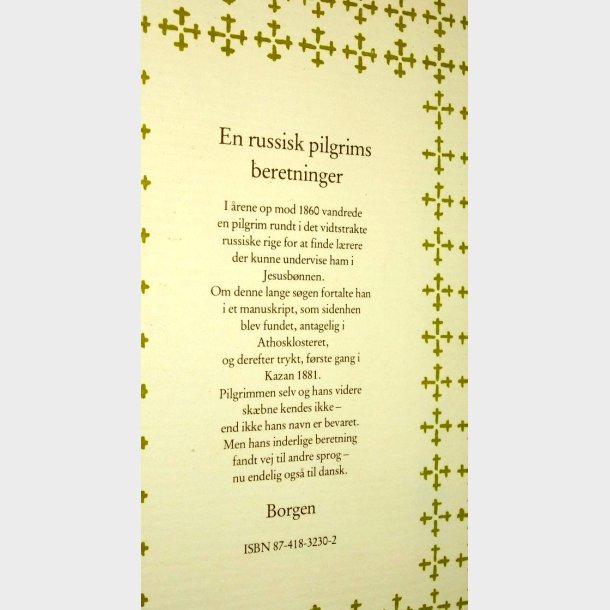 En russisk pilgrims
beretninger
I årene op mod 1860 vandrede
en pilgrim rundt i det vidtstrakte
russiske rige for at finde lærere
der kunne undervise ham i
Jesusbønnen.
Om denne lange søgen fortalte han
i et manuskript, som sidenhen
blev fundet, antagelig i
Athosklosteret,
og derefter trykt, første gang i
Kazan 1881.
Pilgrimmen selv og hans videre
skæbne kendes ikke –
end ikke hans navn er bevaret.
Men hans inderlige beretning
fandt vej til andre sprog –
nu endelig også til dansk.
Borgen
ISBN 87-418-3230-2